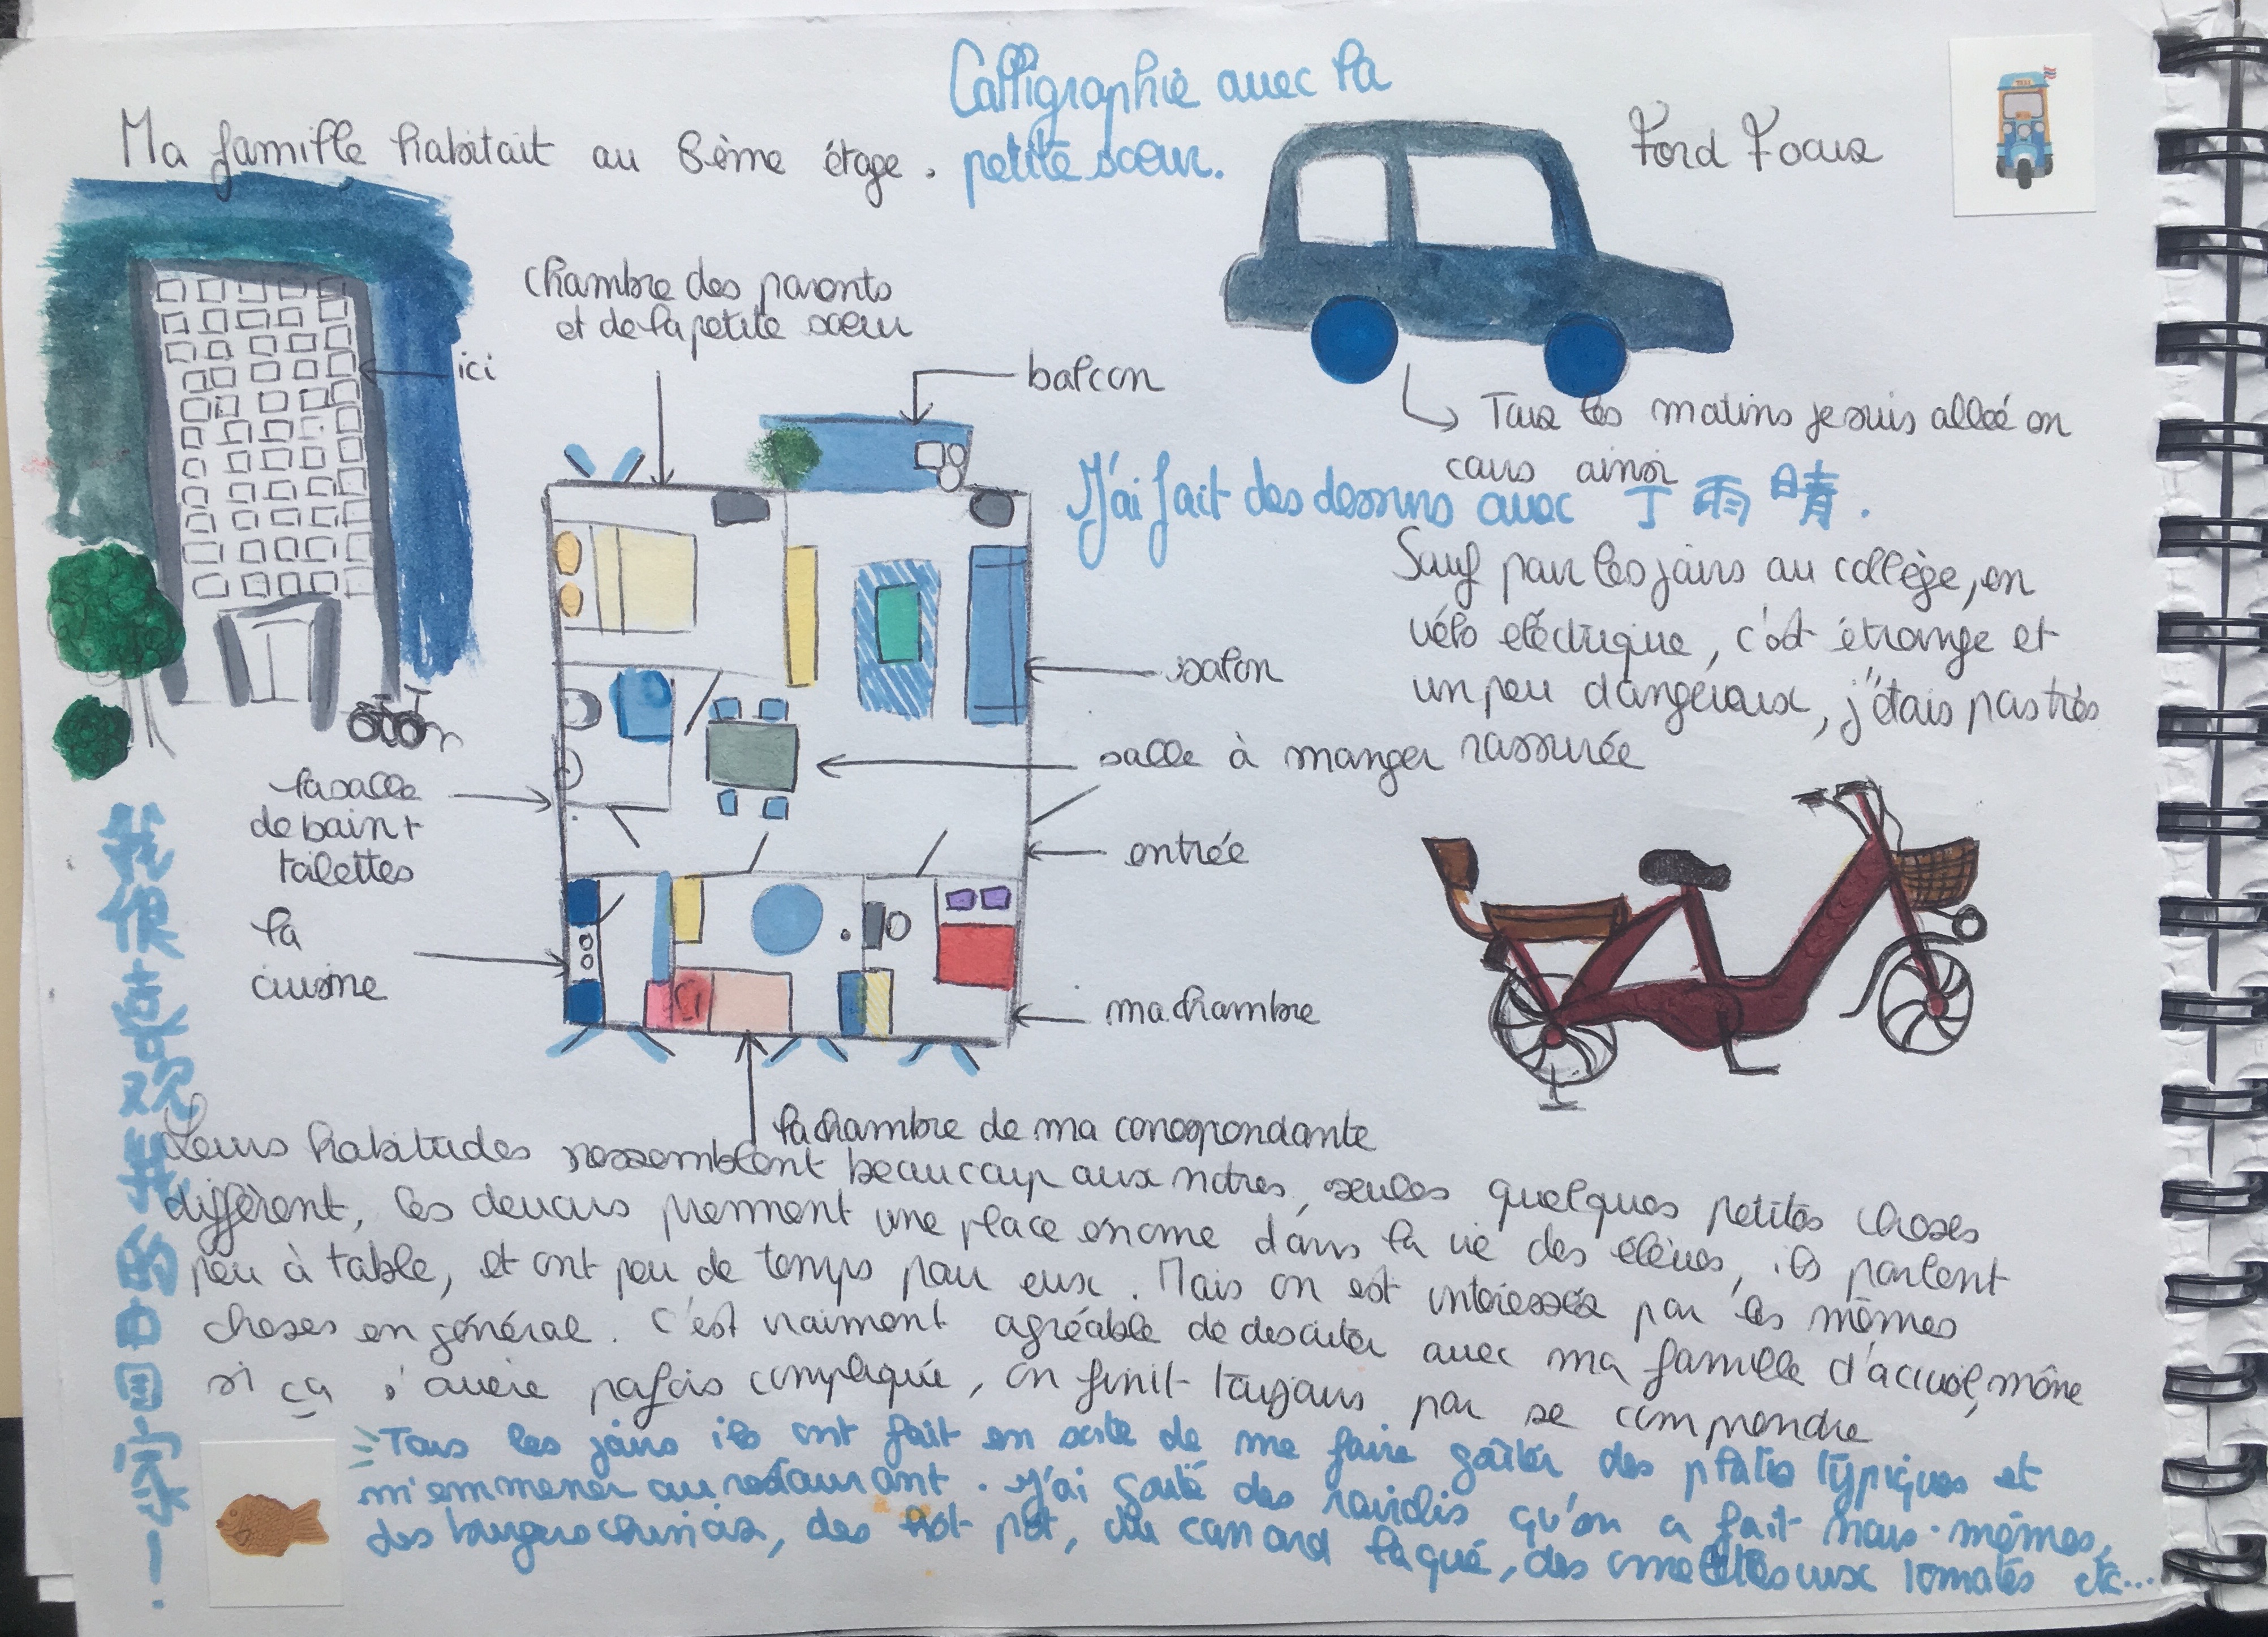 Calligraphie avec la
petite sœur.
Ma famille habitait au 8ème étage.
Ford Focus
TAXI
ici
chambre des parents
et de la petite sœur
balcon
Tous les matins je suis allée en
cours ainsi
J'ai fait des dessins avec 丁雨晴.
Sauf pour les jours au collège, en
vélo eléctrique, c'est étrange et
un peu dangereux, j'étais pas très
rassurée
salon
salle à manger
entrée
la salle
de bain +
toilettes
la
cuisine
ma chambre
la chambre de ma correspondante
我很喜欢我的中国家一!
Leurs habitudes ressemblent beaucoup aux nôtres, seules quelques petites choses
diffèrent, les devoirs prennent une place énorme dans la vie des élèves, ils parlent
peu à table, et ont peu de temps pour eux. Mais on est interessés par les mêmes
choses en général. C'est vraiment agréable de discuter avec ma famille d'accueil, même
si ça s'avère parfois compliqué, on finit toujours par se comprendre
Tous les jours ils ont fait en sorte de me faire goûter des plats typiques et
m'emmener au restaurant. J'ai goûté des raviolis qu'on a fait nous-mêmes,
des burgers chinois, des hot pot, du canard laqué, des omelettes aux tomates etc...